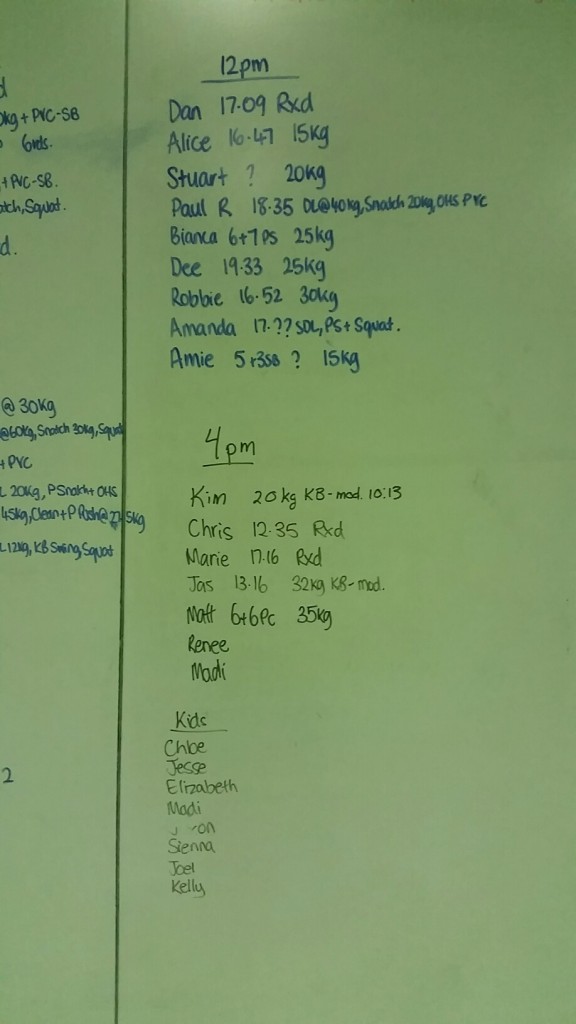 kg + PVC-SB
6rds.
+ PVC-SB.
Squat.
d.
@ 30kg
@60kg, Snatch 30kg, Squat
+ PVC
L 20kg, PSnatch + OHS
45kg, Clean + P Push @
L 12kg, KB Swing, Squat
2
12pm
Dan 17.09 Rxd
Alice 16.47 15kg
Stuart ? 20kg
Paul R 18.35 DL@40kg, Snatch 20kg, OHS PVC
Bianca 6+7PS 25kg
Dee 19.33 25kg
Robbie 16.52 30kg
Amanda 17.?? SDL, PS + Squat.
Amie 5+3SB ? 15kg
4pm
Kim 20kg KB-mod. 10:13
Chris 12.35 Rxd
Marie 17.16 Rxd
Jas 13.16 32kg KB-mod.
Matt 6+6PC 35kg
Renee
Madi
Kids
Chloe
Jesse
Elizabeth
Madi
Sienna
Joel
Kelly